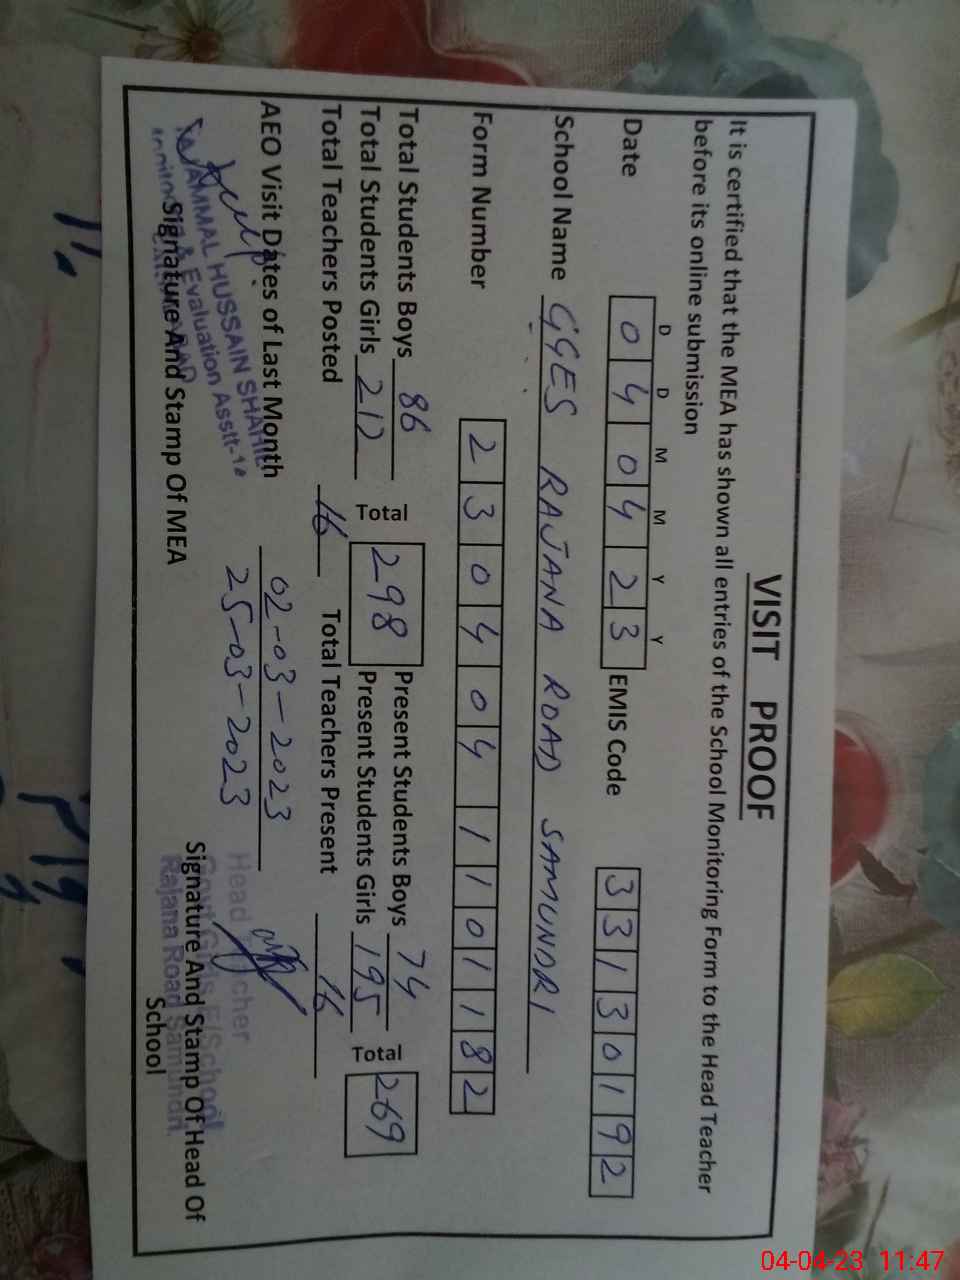 VISIT PROOF
It is certified that the MEA has shown all entries of the School Monitoring Form to the Head Teacher
before its online submission
D D M M Y Y
Date 0 4 0 4 2 3 EMIS Code 3 3 1 3 0 1 9 2
School Name GGES RAJANA ROAD SAMUNDRI
Form Number 2 3 0 4 0 4 1 1 0 1 1 8 2
Total Students Boys 86 Present Students Boys 74
Total Students Girls 212 Total 298 Present Students Girls 195 Total 269
Total Teachers Posted 16 Total Teachers Present 16
AEO Visit Dates of Last Month 02-03-2023
25-03-2023
HUSSAIN
& Evaluation Asstt-
Signature And Stamp Of MEA
Head Teacher
Rajana Road Samundri.
Signature And Stamp Of Head Of
School
04-04-23 11:47